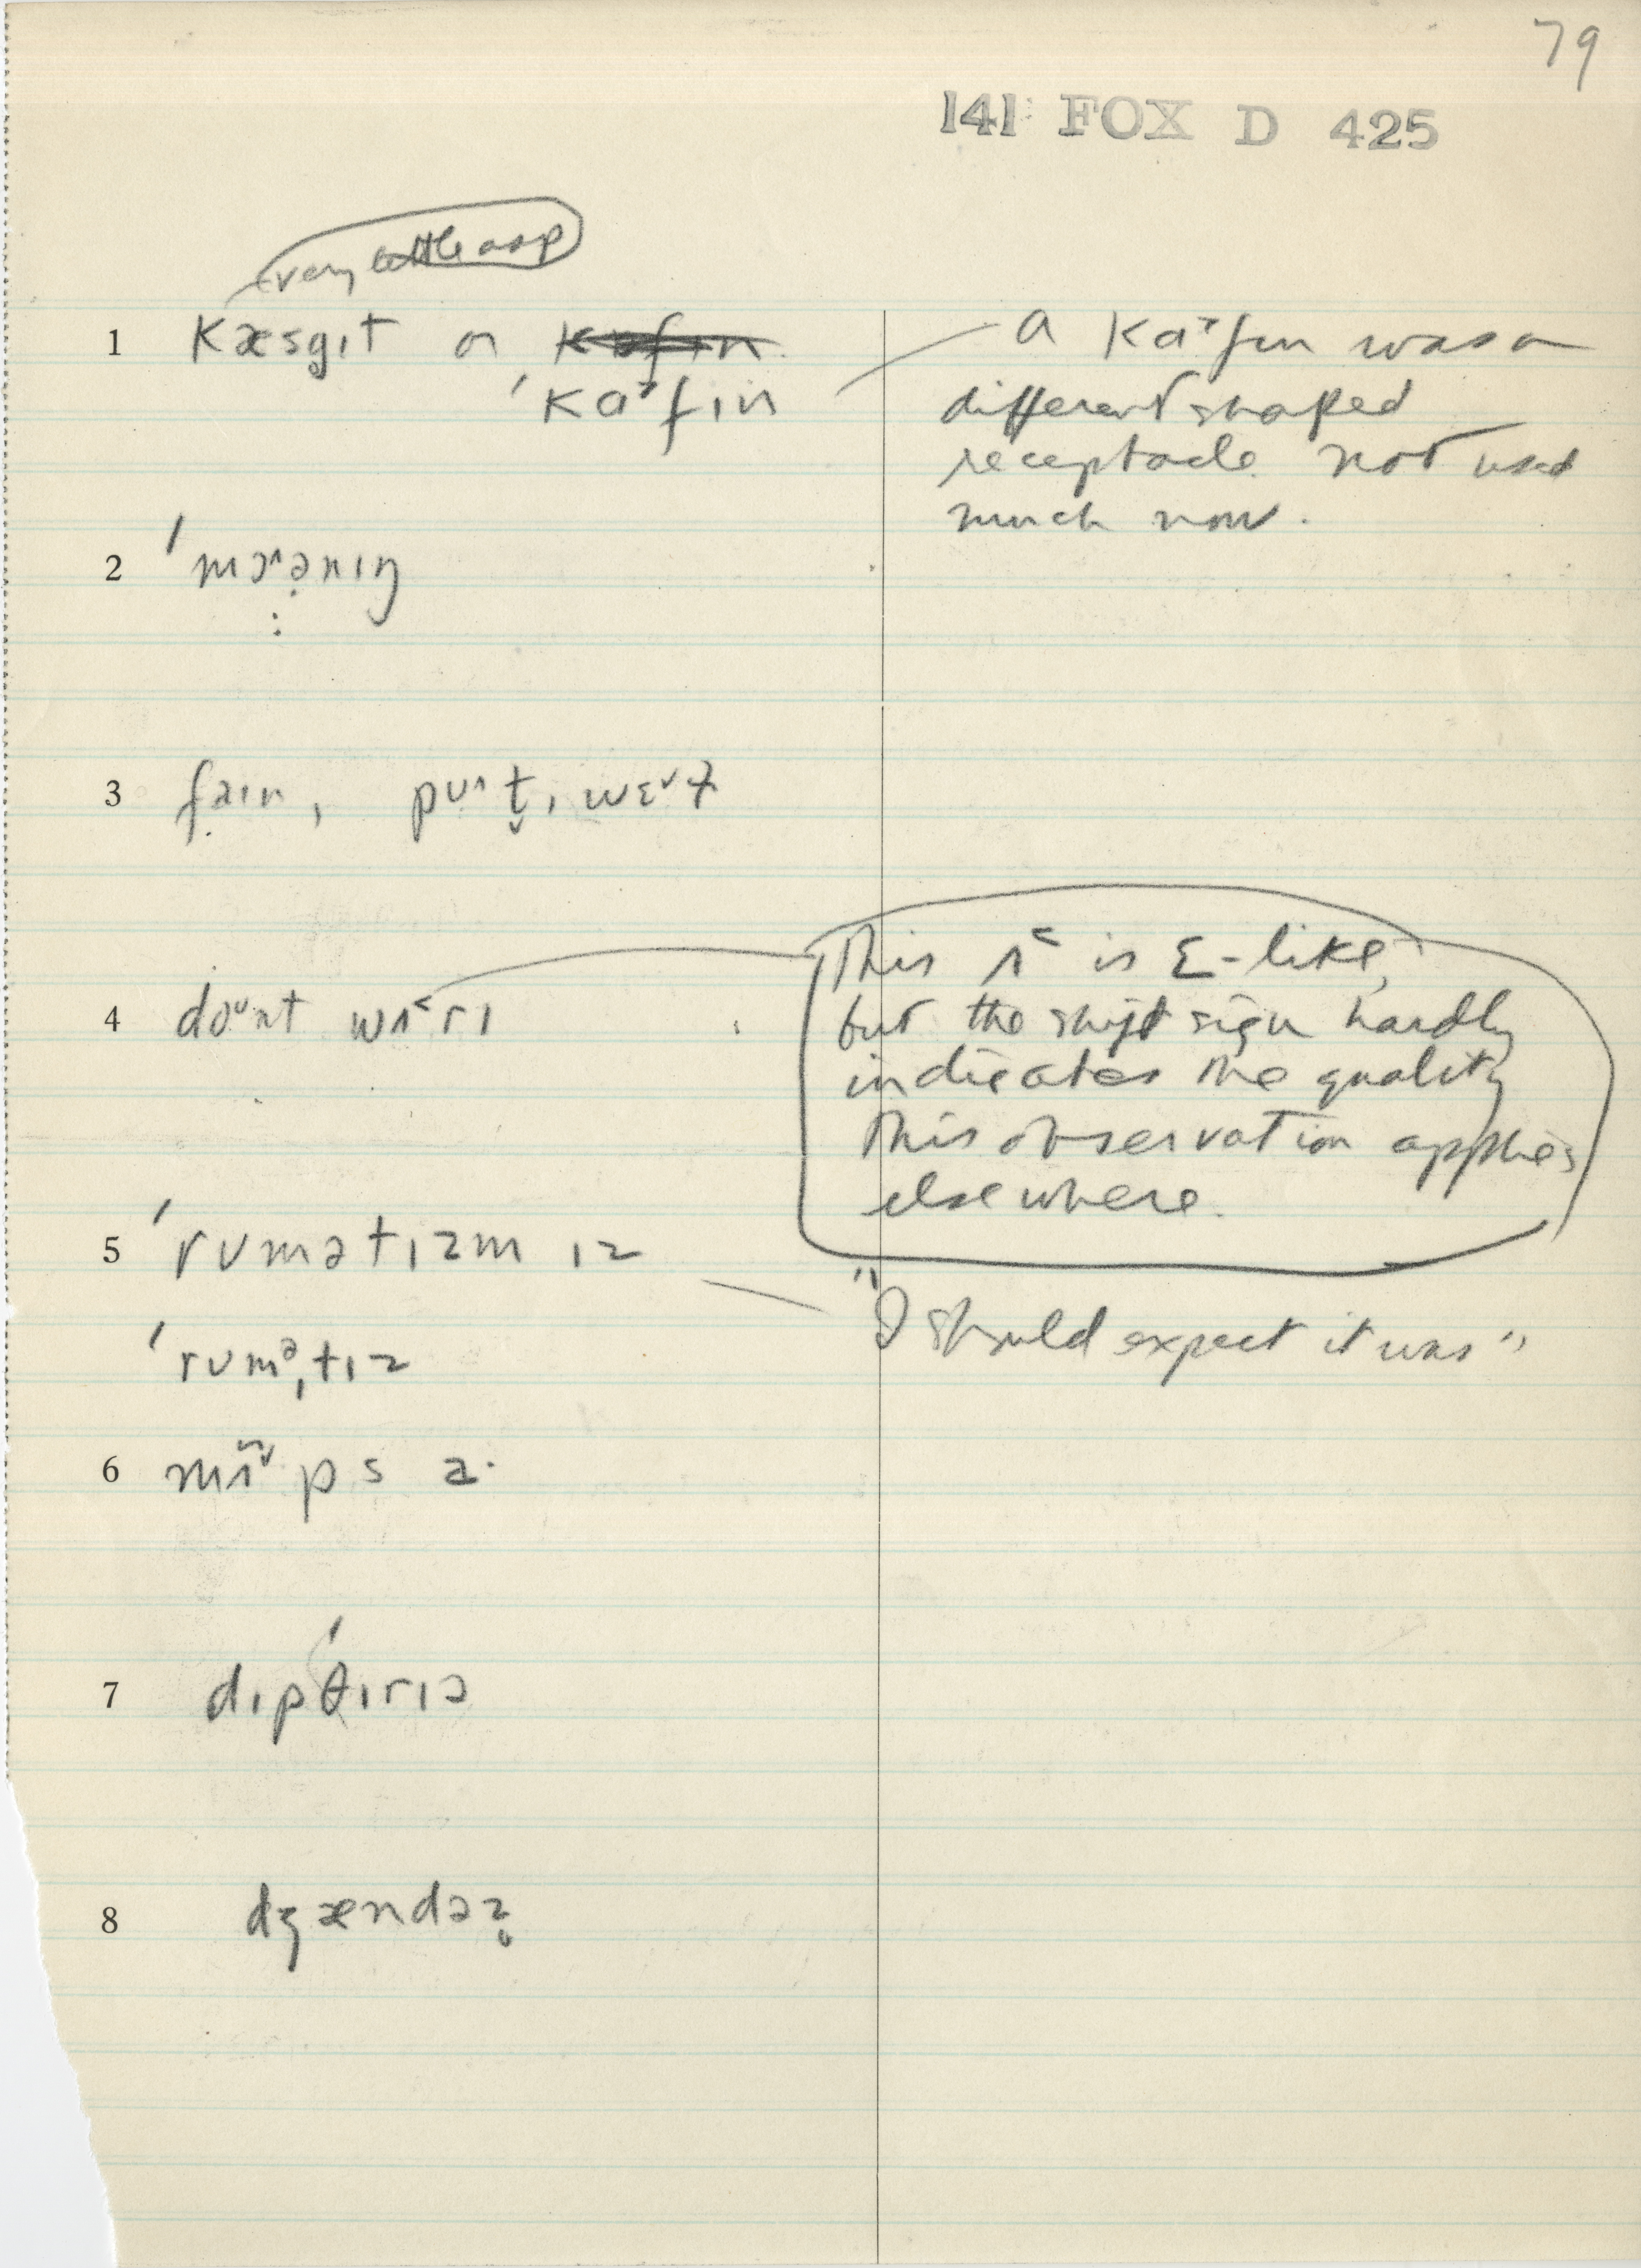 79
141 FOX D 425
very little asp
1 kæsgɪt or
ˈkɑ˃fɪn
a kɑ˃fɪn was a
different shaped
receptacle not used
much now.
2 ˈmɔ˄ə̣nɪŋ
3 faɪn, pʊ˄t̬ɪ wɛ˅ɫ
4 doᴜnt wʌ˂rɪ
This ʌ˂ is ɛ-like,
but the shift sign hardly
indicates the quality
This observation applies
elsewhere.
5 ˈrumətɪzm ɪz
"I should expect it was"
ˈrumᵊˌtɪz
6 mʌ̃˅ps
7 dɪpˈθɪrɪə
8 dʒændəz̥